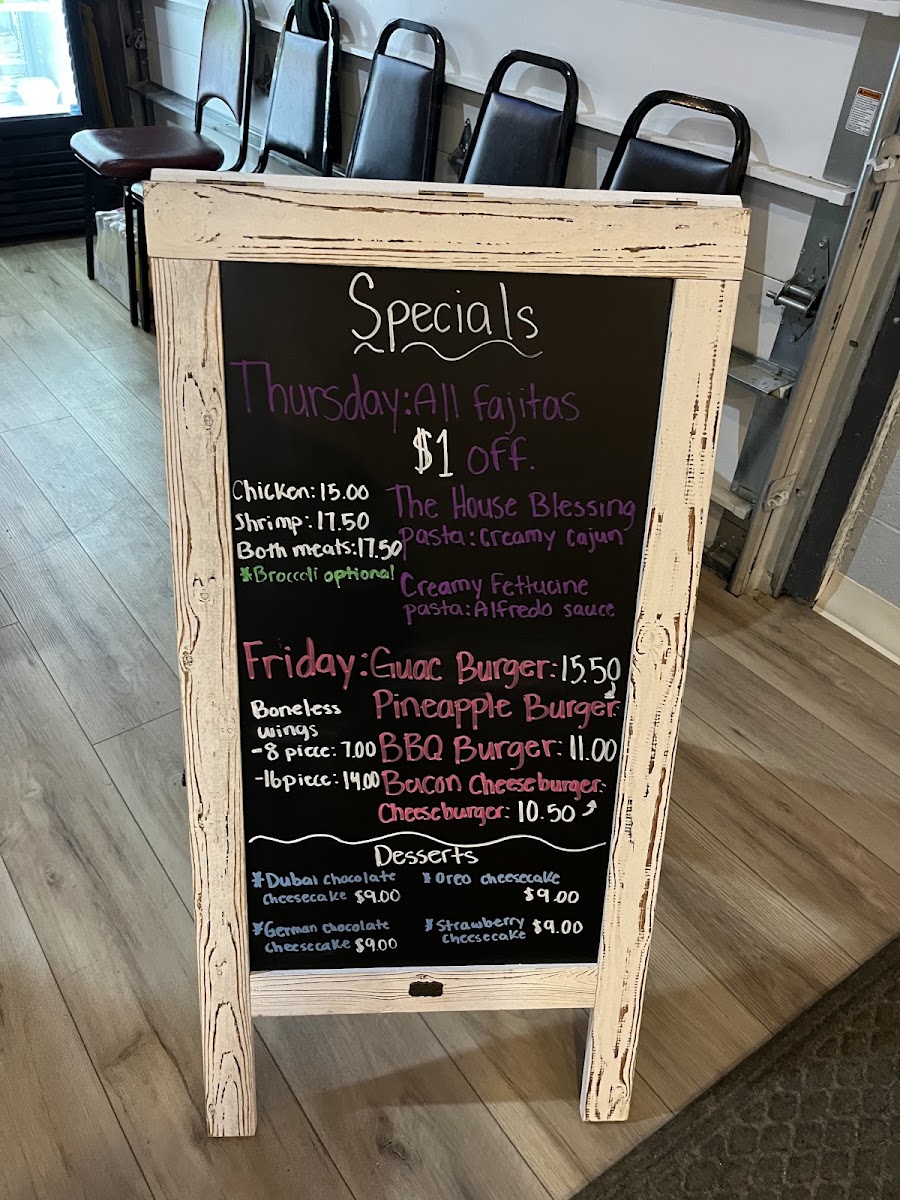 Specials
Thursday: All fajitas
$1 off.
Chicken: 15.00
Shrimp: 17.50
Both meats: 17.50
*Broccoli optional
The House Blessing
pasta: creamy cajun
Creamy Fettucine
pasta: Alfredo sauce
Friday: Guac Burger: 15.50
Pineapple Burger:
BBQ Burger: 11.00
Bacon Cheeseburger:
Cheeseburger: 10.50
Boneless
wings
-8 piece: 7.00
-16 piece: 14.00
Desserts
*Dubai chocolate
cheesecake $9.00
*Oreo cheesecake
$9.00
*German chocolate
cheesecake $9.00
*Strawberry $9.00
cheesecake